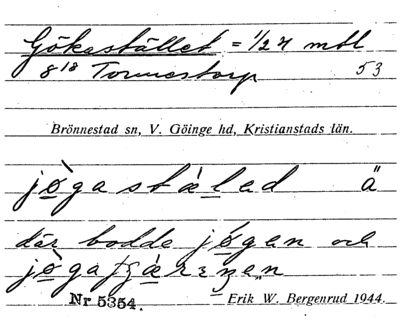 Gökastället = 1/24 mtl
8¹⁸ Tormestorp 53
Brönnestad sn, V. Göinge hd, Kristianstads län.
jògastǽlad ä
där bodde jógan och
Nr 5354. Erik W. Bergenrud 1944.